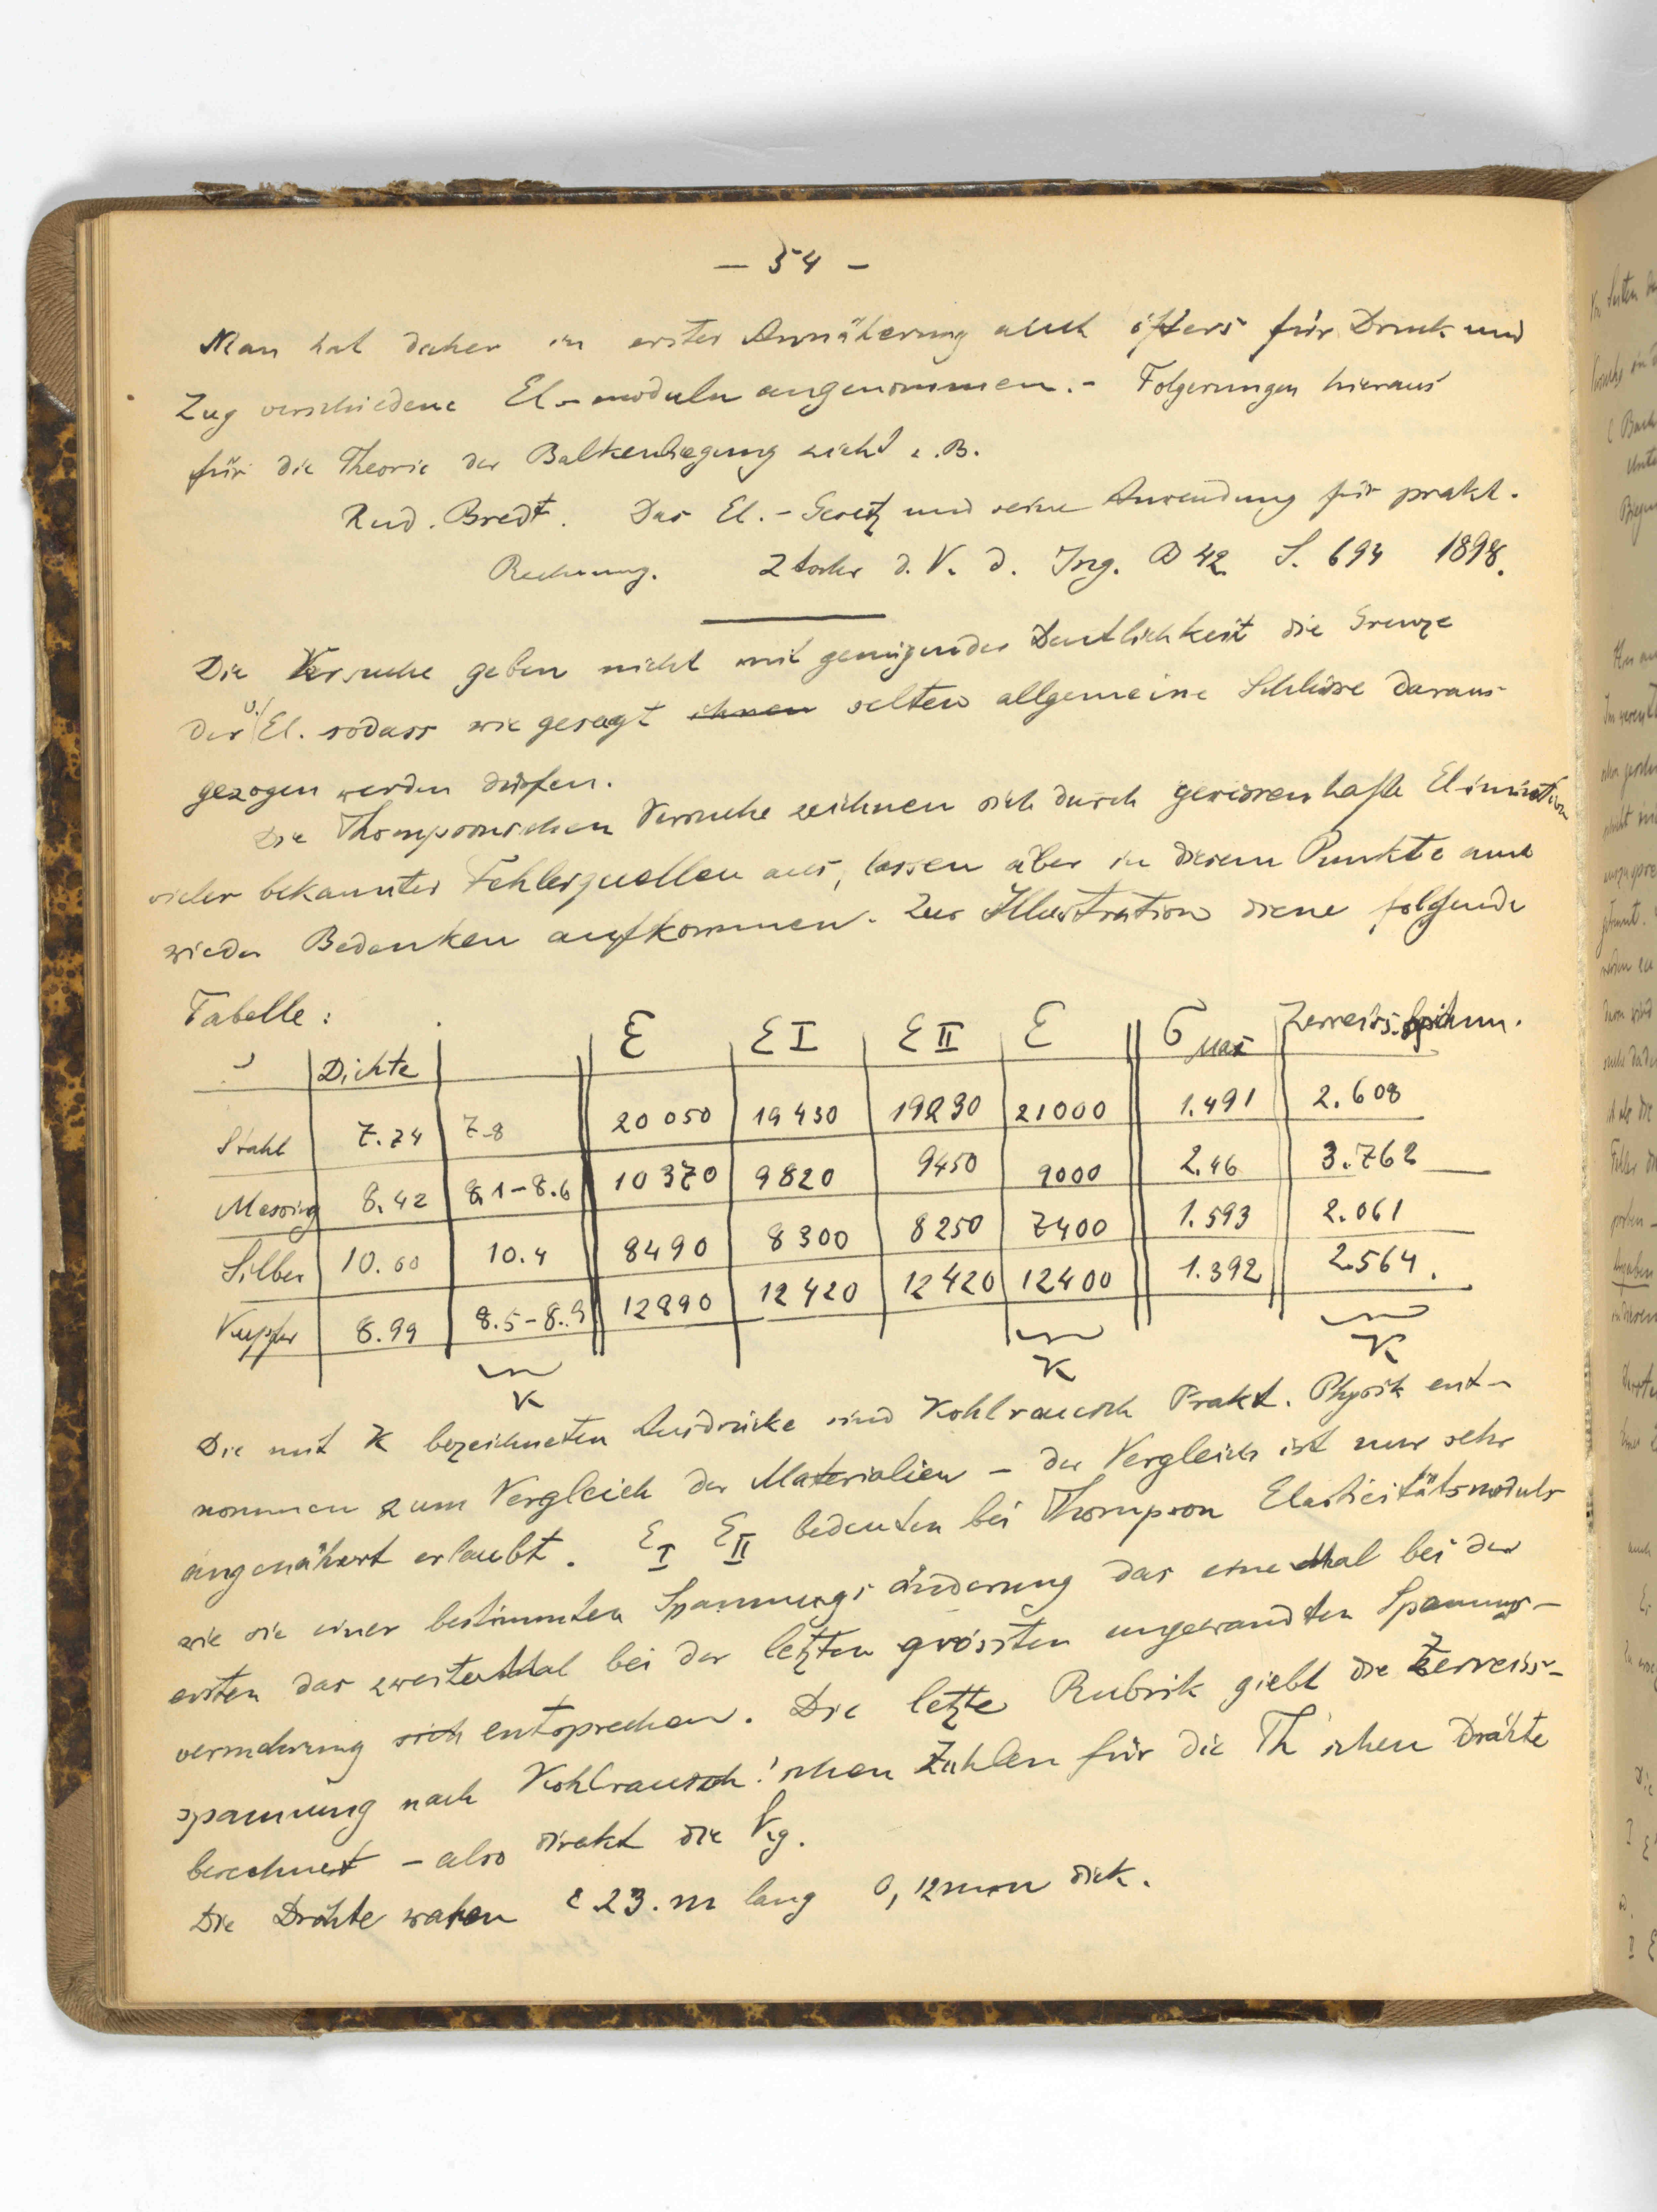 — 54 —
Man hat daher in erster Annäherung auch öfters für Druck und
Zug verschiedene El-moduln angenommen. - Folgerungen hieraus
für die Theorie der Balkenbiegung zieht z.B.
Rud. Bredt. Das El.-Gesetz und seine Anwendung für prakt.
Rechnung. Ztschr d. V. d. Ing. B 42 S. 694 1898.
Die Versuche geben nicht mit genügender Deutlichkeit die Grenze
der v. El. sodass wie gesagt ihnen selten allgemeine Schlüsse daraus
gezogen werden dürfen.
Die Thompsonschen Versuche zeichnen sich durch gewissenhafte Elimination
vieler bekannter Fehlerquellen aus, lassen aber in diesem Punkte auch
wieder Bedenken aufkommen. Zur Illustration diene folgende
Tabelle:
Dichte E E I E II E σ Max Zerreiss.spann.
Stahl 7.74 7-8 20 050 19 430 19230 21000 1.491 2.608
Messing 8.42 8.1-8.6 10 370 9820 9450 9000 2.46 3.762
Silber 10.60 10.4 8490 8300 8250 7400 1.593 2.061
Kupfer 8.99 8.5-8.9 12890 12420 12420 12400 1.392 2.564.
K K K
Die mit K bezeichneten Ausdrücke sind Kohlrausch Prakt. Physik ent-
nommen zum Vergleich der Materialien - der Vergleich ist nur sehr
angenähert erlaubt. E I E II bedeuten bei Thompson Elasticitätsmoduls
wie sie einer bestimmten Spannungsänderung das eine Mal bei der
ersten das zweite Mal bei der letzten grössten angewandten Spannungs-
vermehrung sich entsprechen. Die letzte Rubrik giebt die Zerreiss-
spannung nach Kohlrausch'schen Zahlen für die Th'schen Drähte
berechnet - also direkt die Kg.
Die Drähte waren c 23. m lang 0,12mm dick.